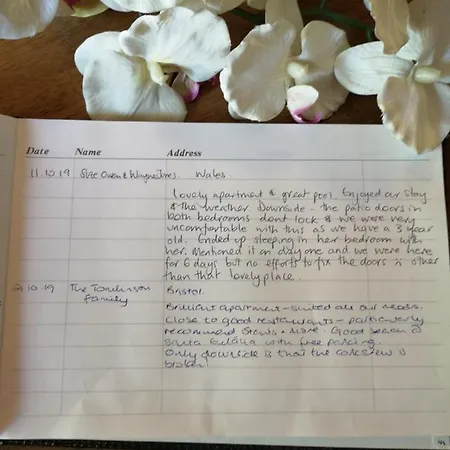 Date Name Address
11.10.19 Sue Owen & Wayne Wales.
Lovely apartment & great pool. Enjoyed our stay
& the weather. Downside - the patio doors in
both bedrooms dont lock & we were very
uncomfortable with this as we have a 3 year
old. Ended up sleeping in her bedroom with
her. Mentioned it on day one and we were here
for 6 days but no efforts to fix the doors is other
than that lovely place.
10.19 The Tomlinson Bristol.
Family
Brilliant apartment - suited all our needs.
Close to good restaurants - particularly
recommend Stews + More. Good beach @
Santa Eulalia with free parking.
Only downside is that the corkscrew is
broken!